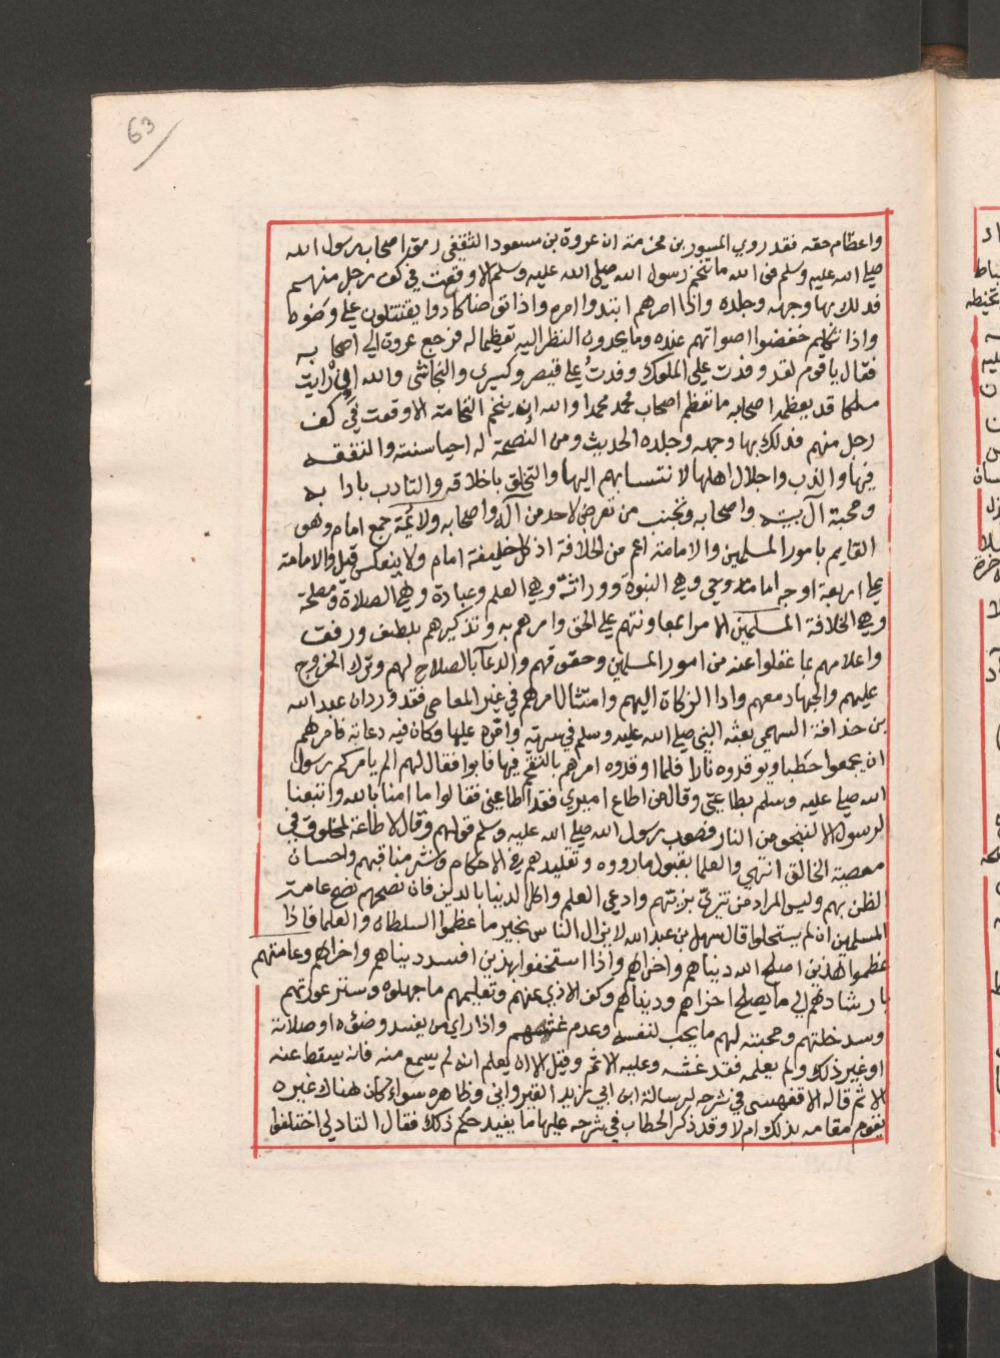 63
واعظام حقه فقد روي المسور بن مخرمة ان عروة بن مسعود الثقفي رمق اصحاب رسول الله
صلي الله عليه وسلم فو الله ما تنخم رسول الله صلي الله عليه وسلم الا وقعت في كف رجل منهم
فدلك بها وجهه وجلده واذا امرهم ابتدروا امره واذا توضا كادوا يقتتلون علي وضوه
واذا تكلم خفضوا اصواتهم عنده وما يحدون النظر اليه تعظيما له فرجع عروة الي اصحابه
فقال يا قوم لقد وفدت علي الملوك وفدت علي قيصر وكسري والنجاشي والله ان رايت
ملكا قد يعظمه اصحابه ما تعظم اصحاب محمد محمدا والله ان تنخم النخامة الا وقعت في كف
رجل منهم فدلك بها وجهه وجلده الحديث ومن النصحة له احيا سنته والتفقه
فيها والذب واجلال اهلها لانتسابهم اليها والتخلق باخلاقه والتادب بادابه
ومحبة آل بيته واصحابه وتجنب من تعرض لاحد من آله واصحابه ولايمة جمع امام وهو
القايم بامور المسلمين والامامة اعم من الخلافة اذ كل خليفة امام ولا ينعكس قيل والامامة
علي اربعة اوجه امامة وحي وهي النبوة ووراثة وهي العلم وعبادة وهي الصلاة ومصلحة
وهي الخلافة المسلمين الامرا بمعاونتهم علي الحق وامرهم به وتذكيرهم بلطف ورفق
واعلامهم بما غفلوا عنه من امور المسلمين وحقوقهم والدعآ بالصلاح لهم وترك الخروج
عليهم والجهاد معهم وادا الزكاة اليهم وامتثال امرهم في غير المعاصي فقد ورد ان عبد الله
بن حذافة السهمي بعثه النبي صلي الله عليه وسلم في سرية وامره عليها وكان فيه دعابة فامرهم
ان يجمعوا حطبا ويوقدوه نارا فلما اوقدوه امرهم بالتقحم فيها فابوا فقال لهم الم يامركم رسول
الله صلي عليه وسلم بطاعتي وقال من اطاع اميري فقد اطاعني فقالوا ما امنا بالله واتبعنا
لرسوله الا لننجو من النار فصوب رسول الله صلي الله عليه وسلم قولهم وقال لا طاعة لمخلوق في
معصية الخالق انتهي والعلما بقبول ما رووه وتقليدهم في الاحكام ونشر مناقبهم واحسان
الظن بهم وليس المراد من تزيي بزيهم وادعي العلم واكل الدنيا بالدين فان نصحهم نصح عامة
المسلمين ان لم يستحلوا قال سهل بن عبد الله لا يزال الناس بخير ما عظموا السلطان والعلما فاذا
عظموا هذين اصلح الله دنياهم واخراهم واذا استخفوا بهذين افسد دنياهم واخراهم وعامتهم
بارشادهم الي ما يصلح اخراهم ودنياهم وكف الاذي عنهم وتعليمهم ما جهلوه وستر عورتهم
وسد خلتهم ومحبته لهم ما يحب لنفسه وعدم غشهم واذا راي من يفسد وضوه او صلاته
او غير ذلك ولم يعلمه فقد غشه وعليه الاثم وقيل الا ان يعلم انه لم يسمع منه فانه يسقط عنه
الاثم قاله الاقفهسي في شرحه لرسالة ابن ابي زيد القيرواني وظاهره سواء كان هناك غيره
يقوم مقامه بذلك ام لا وقد ذكر الحطاب في شرحه عليها ما يفيد حكم ذلك فقال التادلي اختلفوا